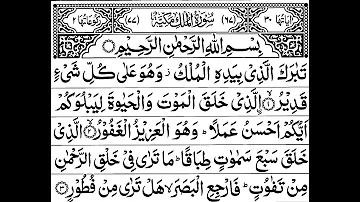 اٰیَاتُهَا ۳۰ (۶۷) سُوْرَةُ الْمُلْكِ مَكِّیَّةٌ (۷۷) رُكُوْعَاتُهَا ۲
بِسْمِ اللّٰهِ الرَّحْمٰنِ الرَّحِیْمِ
تَبٰرَكَ الَّذِیْ بِیَدِهِ الْمُلْكُ ؗ وَهُوَ عَلٰی كُلِّ شَیْءٍ
قَدِیْرُ ۙ﴿۱﴾ ۟الَّذِیْ خَلَقَ الْمَوْتَ وَالْحَیٰوةَ لِیَبْلُوَكُمْ
اَیُّكُمْ اَحْسَنُ عَمَلًا ؕ وَهُوَ الْعَزِیْزُ الْغَفُوْرُ ۙ﴿۲﴾ الَّذِیْ
خَلَقَ سَبْعَ سَمٰوٰتٍ طِبَاقًا ؕ مَا تَرٰی فِیْ خَلْقِ الرَّحْمٰنِ
مِنْ تَفٰوُتٍ ؕ فَارْجِعِ الْبَصَرَ ۙ هَلْ تَرٰی مِنْ فُطُوْرٍ ﴿۳﴾